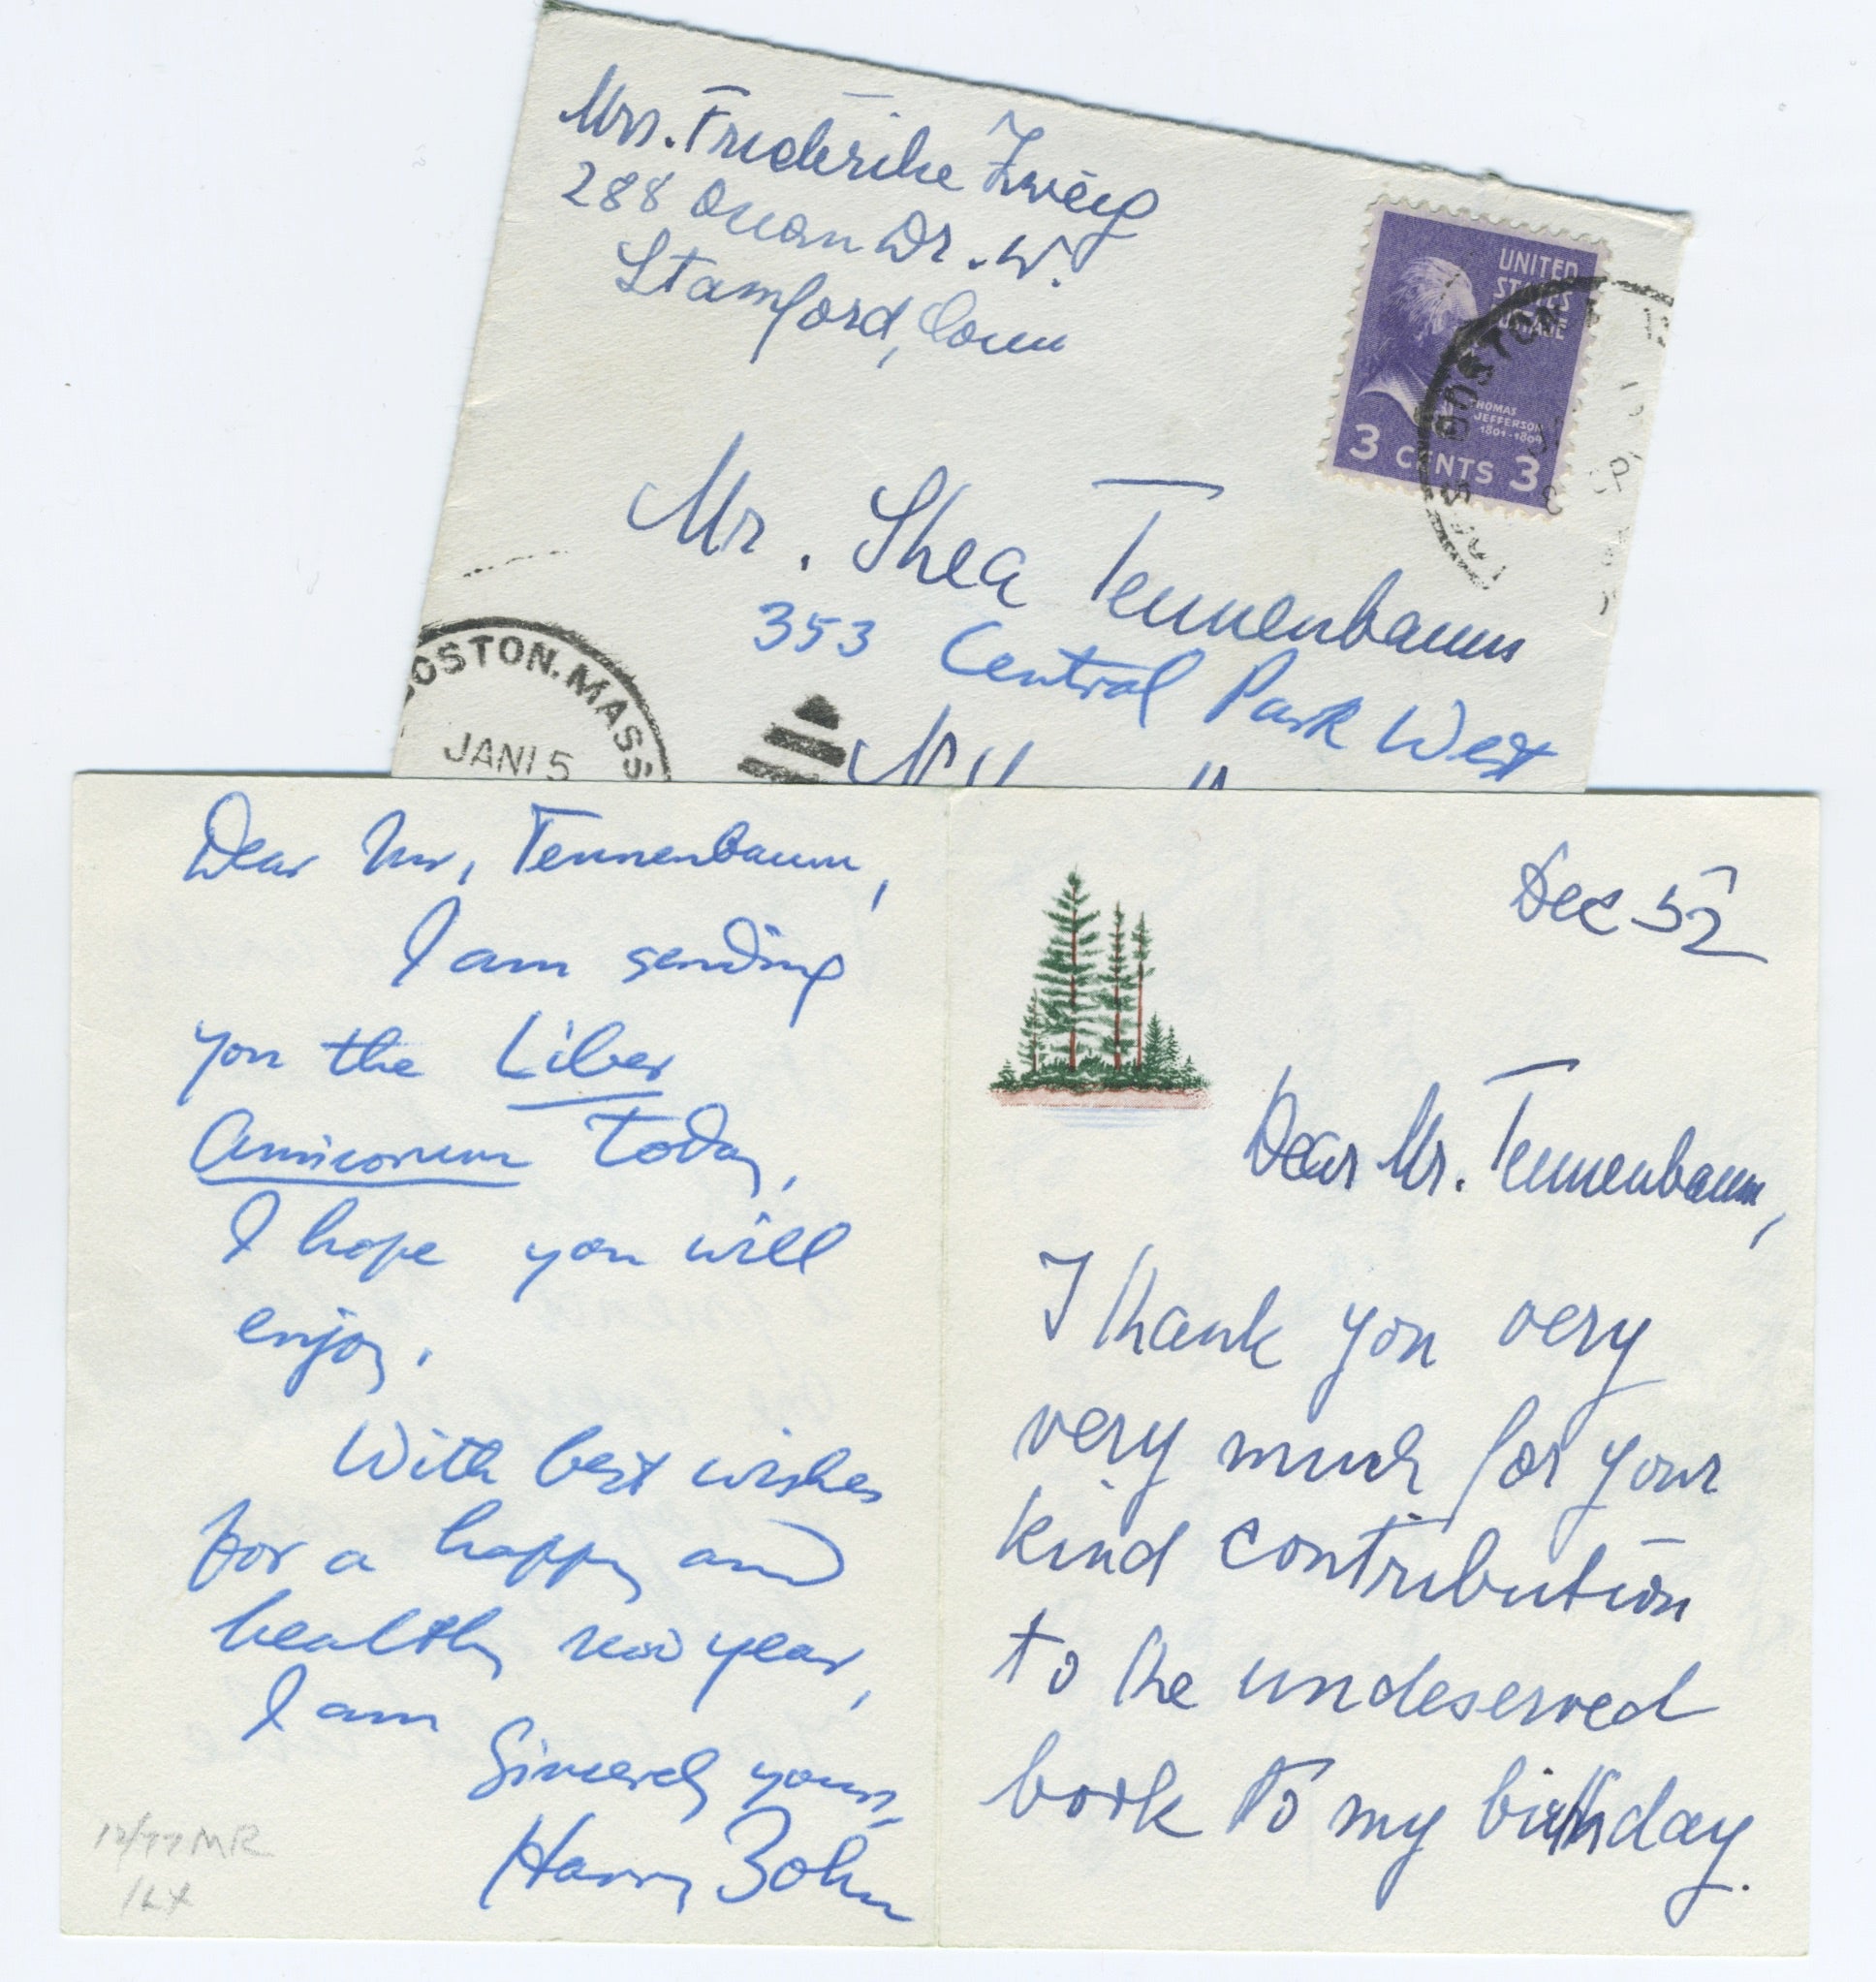 Mrs. Friderike Zweig
288 Ocean Dr. W.
Stamford, Conn
UNITED
STATES
POSTAGE
THOMAS
JEFFERSON
1801-1809
3 CENTS 3
BOSTON
Mr. Shea Tennenbaum
353 Central Park West
BOSTON. MASS
JAN 15
Dear Mr. Tennenbaum,
I am sending
you the Liber
Amicorum today.
I hope you will
enjoy.
With best wishes
for a happy and
healthy new year,
I am
Sincerely yours,
Harry Zohn
12/77 MR
Dec 52
Dear Mr. Tennenbaum,
I thank you very
very much for your
kind contribution
to the undeserved
book to my birthday.